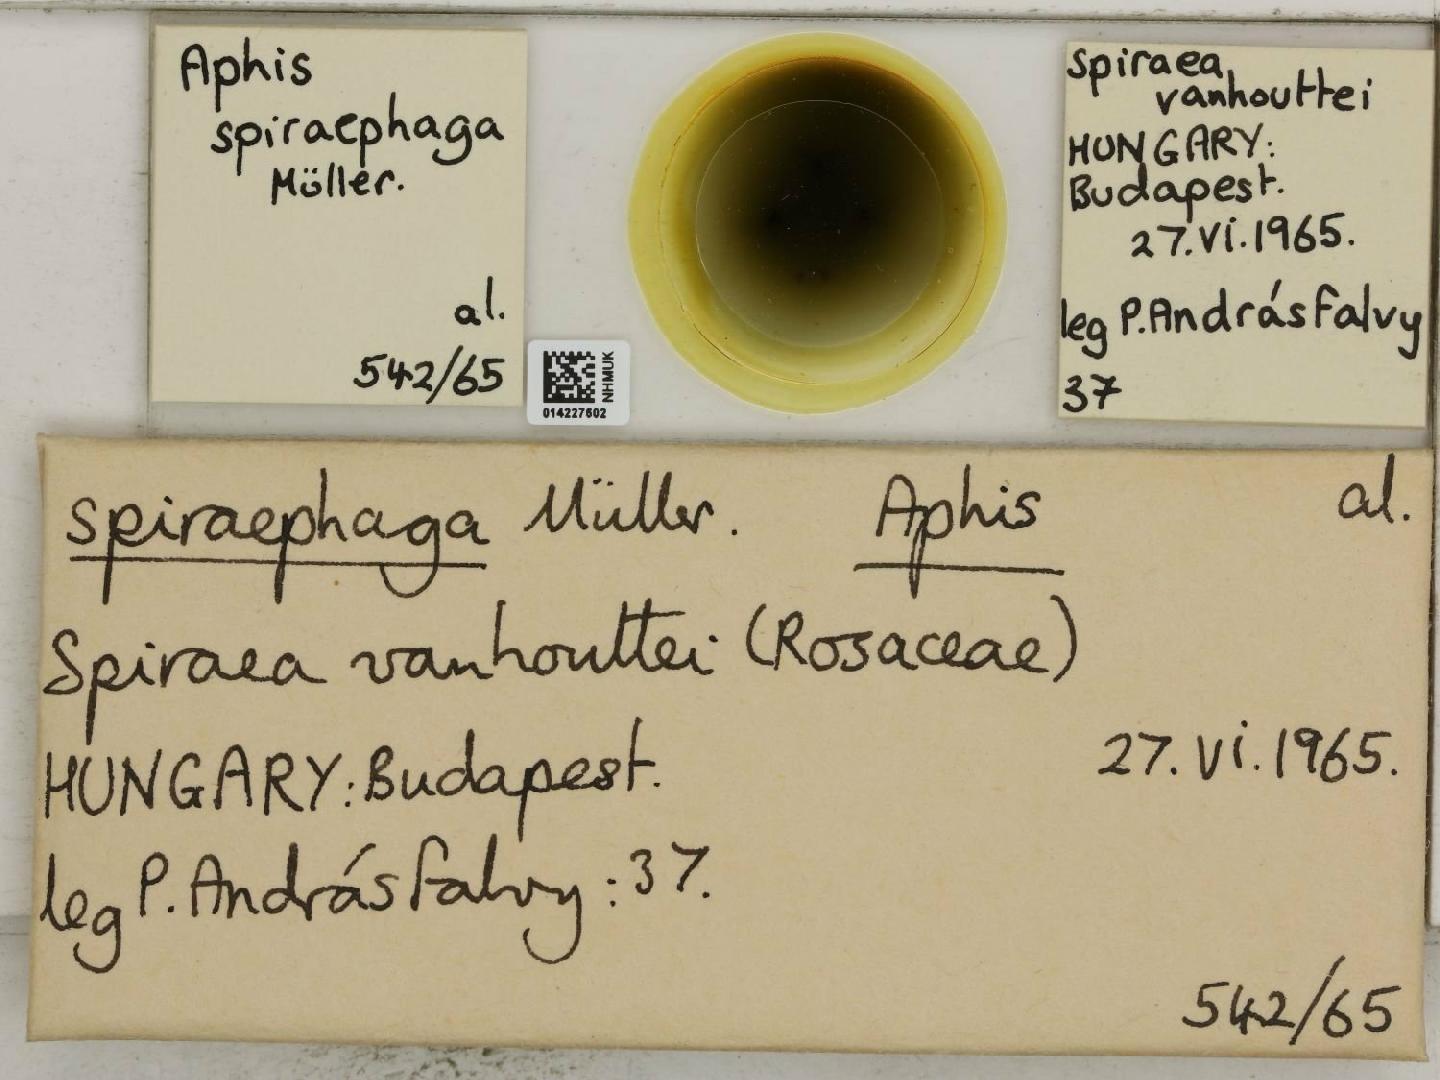 Aphis
spiraephaga
Müller.
al.
542/65
NHMUK
014227602
spiraea
vanhouttei
HUNGARY:
Budapest.
27.vi.1965.
leg P.Andrásfalvy
37
spiraephaga Müller. Aphis al.
Spiraea vanhouttei (Rosaceae)
HUNGARY: Budapest. 27.vi.1965.
leg P.Andrásfalvy: 37.
542/65